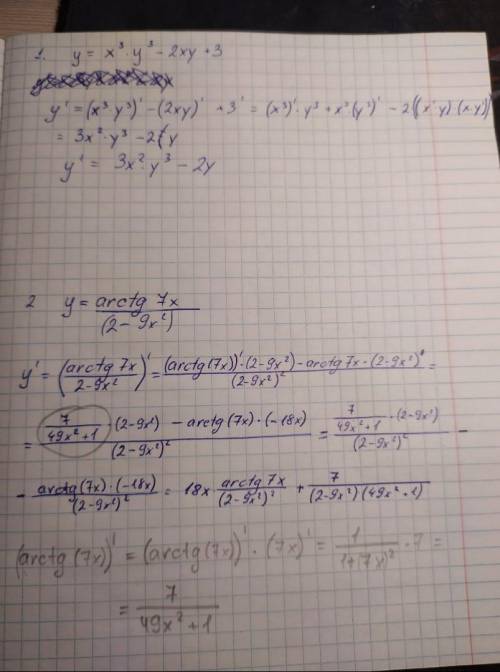 1. y = x³·y³ - 2xy + 3
y' = (x³·y³)' - (2xy)' + 3' = (x³)'·y³ + x³·(y³)' - 2((x'·y)·(x·y)')
= 3x²·y³ - 2y
y' = 3x²·y³ - 2y
2 y = arctg 7x / (2-9x²)
y' = (arctg 7x / 2-9x²)' = (arctg(7x))'·(2-9x²) - arctg 7x·(2-9x²)' / (2-9x²)² =
= 7/49x²+1 · (2-9x²) - arctg(7x)·(-18x) / (2-9x²)² = 7/49x²+1 · (2-9x²) / (2-9x²)² -
- arctg(7x)·(-18x) / (2-9x²)² = 18x · arctg 7x / (2-9x²)² + 7 / (2-9x²)(49x²+1)
(arctg(7x))' = (arctg(7x))'·(7x)' = 1 / 1+(7x)² · 7 =
= 7 / 49x²+1